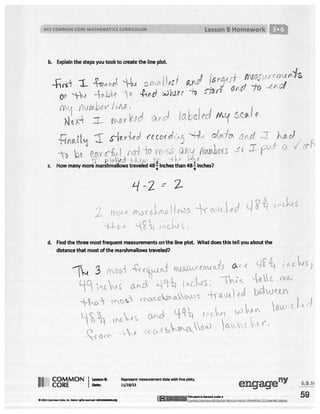 NYS COMMON CORE MATHEMATICS CURRICULUM Lesson 8 Homework 3•6
b. Explain the steps you took to create the line plot.
First I found the smallest and largest measurements
on the table to find where to start and to end
my number line.
Next I marked and labeled my scale.
Finally I started recording the data and I had
to be careful not to miss any numbers so I put a
c. How many more marshmallows traveled 48 inches than 48 inches?
4 - 2 = 2
2 more marshmallows traveled 48 inches
than 48 inches.
d. Find the three most frequent measurements on the line plot. What does this tell you about the
distance that most of the marshmallows traveled?
The 3 most frequent measurements are 48 inches,
49 inches and 49 inches. This tells me
that most marshmallows traveled between
48 inches and 49 inches when launched
from the marshmallow launcher.
COMMON CORE
Lesson 8: Represent measurement data with line plots.
Date: 11/19/13
engage ny
59